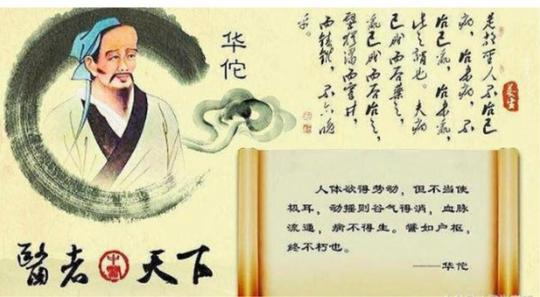 华佗
是故圣人不治已
病,治未病,不
治已乱,治未乱,
此之谓也。夫病
已成而后药之,
乱已成而后治之,
譬犹渴而穿井,
而铸锥,不亦晚
乎。
养生
人体欲得劳动,但不当使
极耳,动摇则谷气得消,血脉
流通,病不得生。譬如户枢,
终不朽也。
——华佗
醫者天下